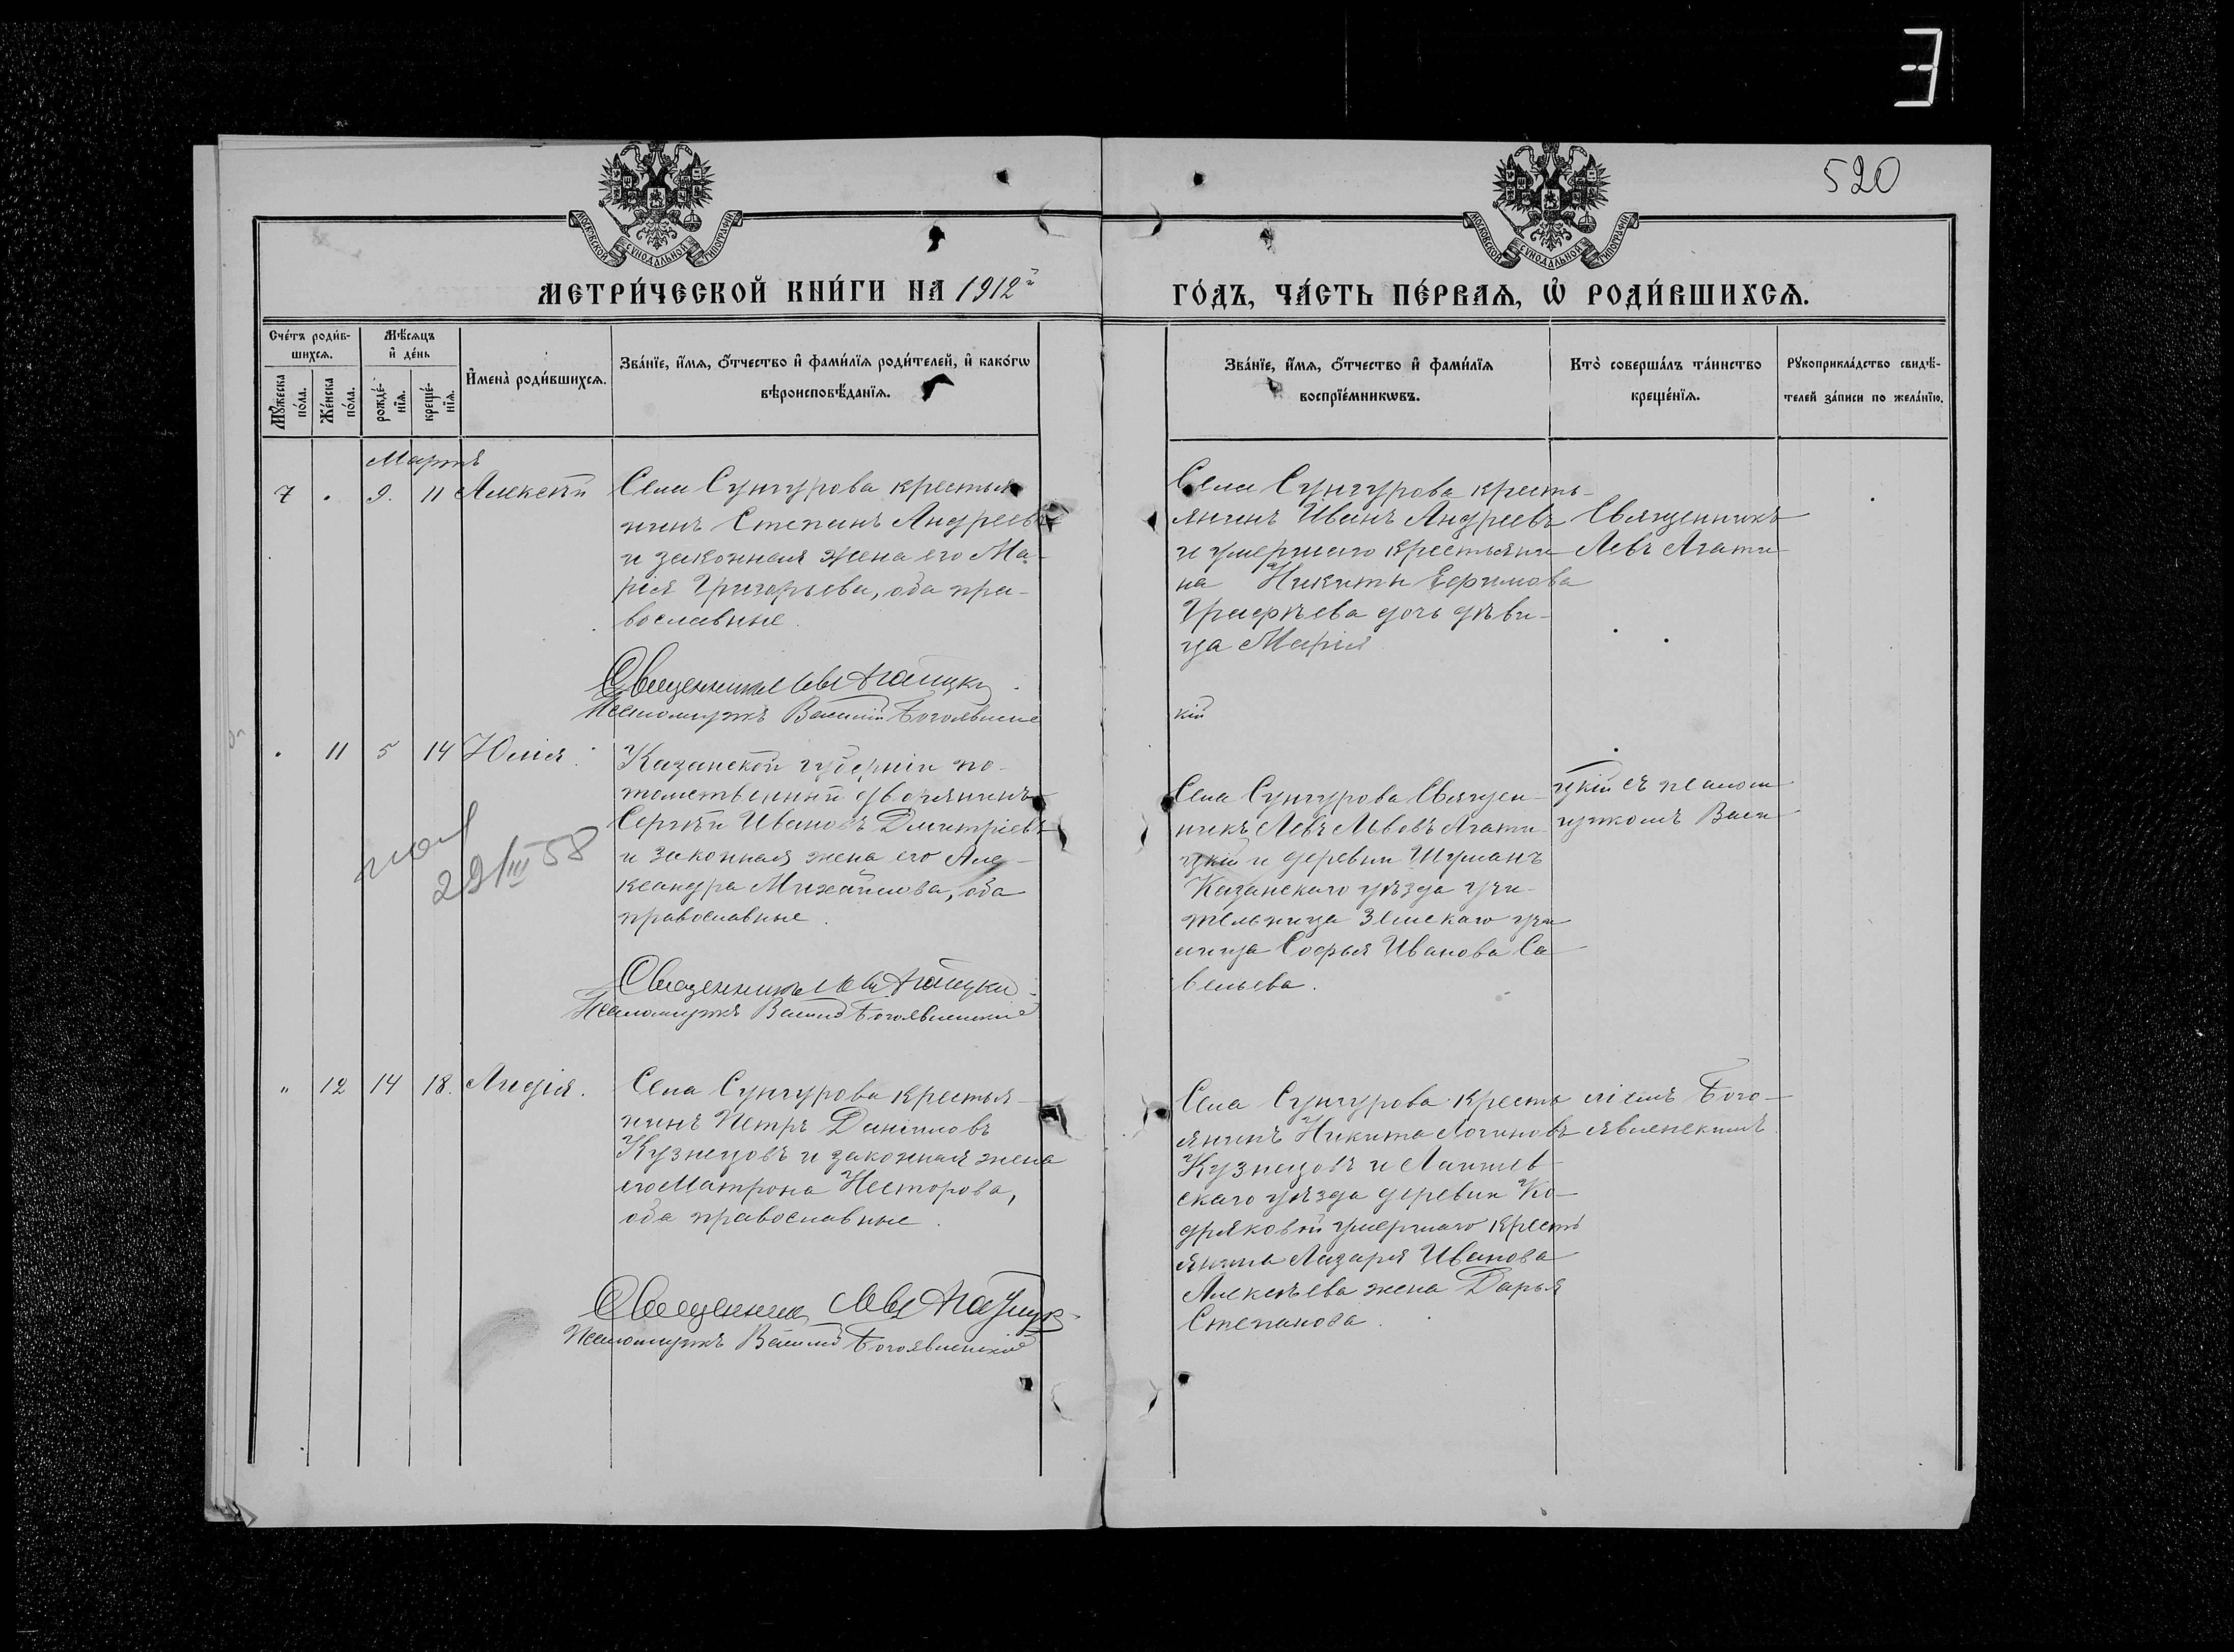 520
МОСКОВСКОЙ СѴНОДАЛЬНОЙ ТИПОГРАФІИ
МОСКОВСКОЙ СѴНОДАЛЬНОЙ ТИПОГРАФІИ
МЕТРИ́ЧЕСКОЙ КНИ́ГИ НА 1912й
ГО́ДЪ, ЧА́СТЬ ПЕ́РВАЯ, Ѡ РОДИ́ВШИХСЯ.
Сче́тъ роди́в-
шихся.
Мѣ́сяцъ
и де́нь
Мꙋ́жеска
по́ла.
Же́нска
по́ла.
рожде́-
нїя.
креще́-
нїя.
Имена̀ роди́вшихся.
Зва́нїе, и́мя, ѻ́тчество и фами́лїя роди́телей, и како́гѡ
вѣроисповѣ́данїя.
Зва́нїе, и́мя, ѻ́тчество и фами́лїя
воспрїе́мникѡвъ.
Кто̀ соверша́лъ та́инство
креще́нїя.
Рꙋкоприкла́дство свидѣ́-
телей за́писи по жела́нїю.
Мартъ
7 . 9. 11 Алексѣй
Села Сунгурова крестья
нинъ Степанъ Андреевъ
и законная жена его Ма-
рія Григорьева, оба пра-
вославные.
Священникъ Левъ Агатицкі
Псаломщикъ Василій Богоявленс
Села Сунгурова кресть-
янинъ Иванъ Андреевъ
и умершаго крестьяни
на Никиты Ефимова
дочь дѣви-
ца Марія
кій
Священникъ
Левъ Агати
. 11 5 14 Юлія.
22/III 58
Казанской губерніи по-
томственный дворянинъ
Сергѣй Ивановъ Дмитріевъ
и законная жена его Але-
ксандра Михайлова, оба
православные.
Священникъ Левъ Агатицкій
Псаломщикъ Василій Богоявленскій
Села Сунгурова Священ-
никъ Левъ Львовъ Агати
цкій и деревни Шуманъ
Казанскаго уѣзда учи-
тельница Земскаго учи
лища Софья Иванова Са
вельева.
цкій съ псалом
щикомъ Васи
" 12 14 18. Лидія.
Села Сунгурова крестья-
нинъ Петръ Даниловъ
Кузнецовъ и законная жена
его Матрона Несторова,
оба православные.
Священникъ Левъ Агатицк
Псаломщикъ Василій Богоявленскій
Села Сунгурова кресть
янинъ Никита Логиновъ
Кузнецовъ и Лаишев-
скаго уѣзда деревни Ко-
дряковой умершаго кресть
янина Лазаря Иванова
Алексѣева жена Дарья
Степанова.
ліемъ Бого-
явленскимъ.